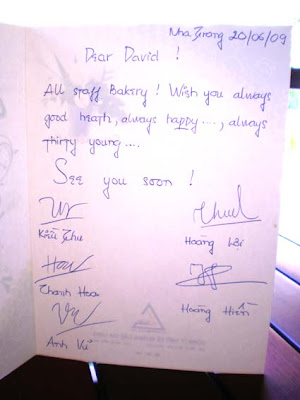 Nha Trang 20/06/09
Dear David !
All staff Bakery ! Wish you always
good heath, always happy...., always
thirty young....
See you soon !
Kiều Thu
Hoàng Lài
Thanh Hoa
Hoàng Hiền
Anh Vũ